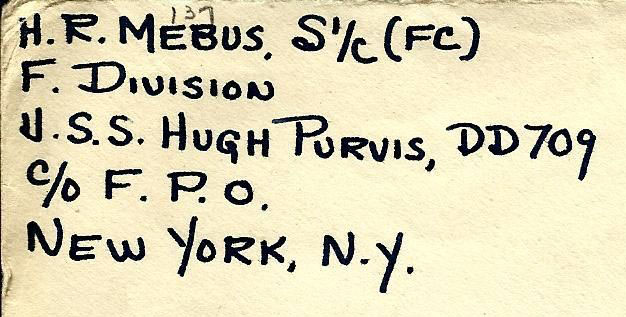 137
H. R. MEBUS, S1/c (FC)
F. DIVISION
U.S.S. HUGH PURVIS, DD709
c/o F. P. O.
NEW YORK, N.Y.